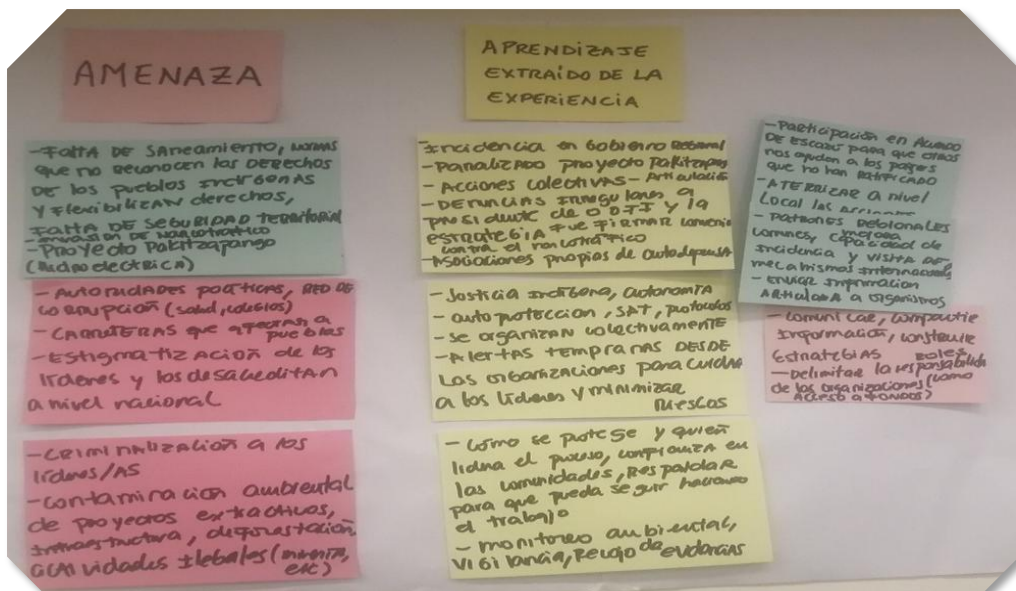 AMENAZA
- FALTA DE SANEAMIENTO, NORMAS
que no RECONOCEN LOS DERECHOS
DE LOS PUEBLOS INDÍGENAS
Y FLEXIBILIZAN derechos,
FALTA DE SEGURIDAD TERRITORIAL
- INVASIÓN DE NARCOTRÁFICO
- Proyecto Pakitzapango
(hidroeléctrica)
- AUTORIDADES POLÍTICAS, RED DE
CORRUPCIÓN (salud, colegios)
- CARRETERAS que afectan a
pueblos
- Estigmatización de los
líderes y los desacreditan
a nivel nacional
- CRIMINALIZACIÓN a los
líderes/AS
- contaminación ambiental
de proyectos extractivos,
infraestructura, deforestación,
actividades ilegales (minería,
etc)
APRENDIZAJE
EXTRAÍDO DE LA
EXPERIENCIA
Incidencia en Gobierno Regional
- Paralizado proyecto Pakitzapango
- Acciones colectivas - Articulación
- Denuncias a
presidente de y la
estrategia fue firmar convenio
contra el narcotráfico
- Asociaciones propias de autodefensa
- Justicia Indígena, autonomía
- autoprotección, SAT, protocolos
- se organizan colectivamente
- Alertas tempranas DESDE
Las organizaciones para cuidar
a los líderes y minimizar
riesgos
- Cómo se protege y quién
lidera el proceso, confianza en
las comunidades, Respaldar
para que pueda seguir haciendo
el trabajo
- monitoreo ambiental,
vigilancia, recojo de evidencias
- Participación en Acuerdo
DE ESCAZÚ para que otros
nos ayuden a los países
que no han RATIFICADO
- ATERRIZAR a nivel
Local las acciones
- PATRONES REGIONALES
comunes, mejorar capacidad de
incidencia y visita DE
mecanismos internacionales
- Enviar información
ARTICULADA a organismos
- Comunicar, compartir
Información, construir
Estrategias
- Delimitar roles la responsabilidad
de las organizaciones (como
ACCESO a FONDOS)